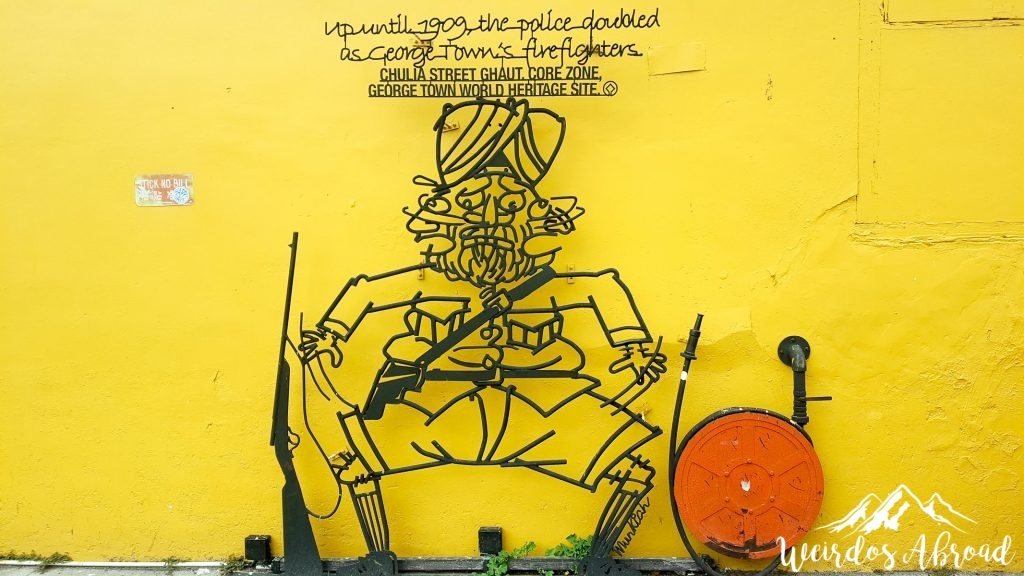 up until 1909, the police doubled
as George Town's firefighters
CHULIA STREET GHAUT. CORE ZONE,
GEORGE TOWN WORLD HERITAGE SITE.
STICK NO BILL
Munkian
Weirdos Abroad